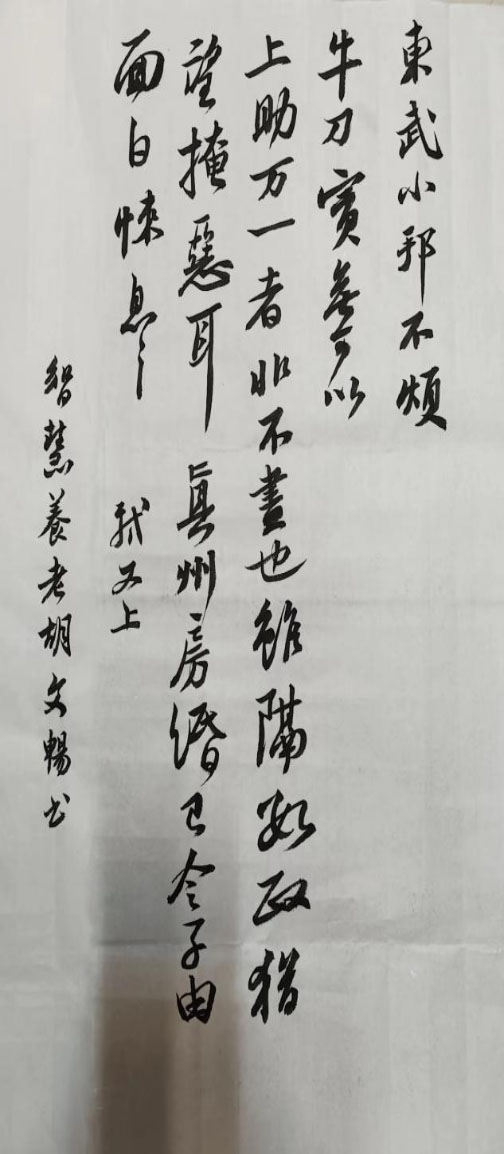 東武小邦不煩
牛刀實無可以
上助万一者非不盡也雖隔數政猶
望掩惡耳真州房緡已令子由
面白悚息〻
軾又上
智慧養老胡文暢书